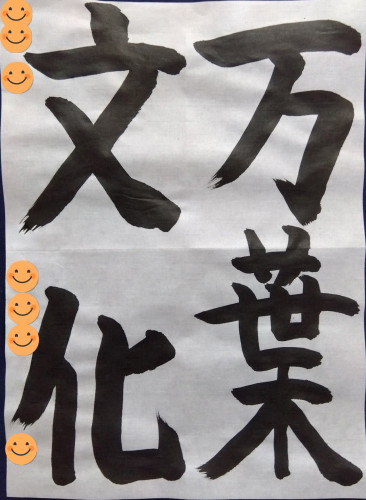 万葉
文化